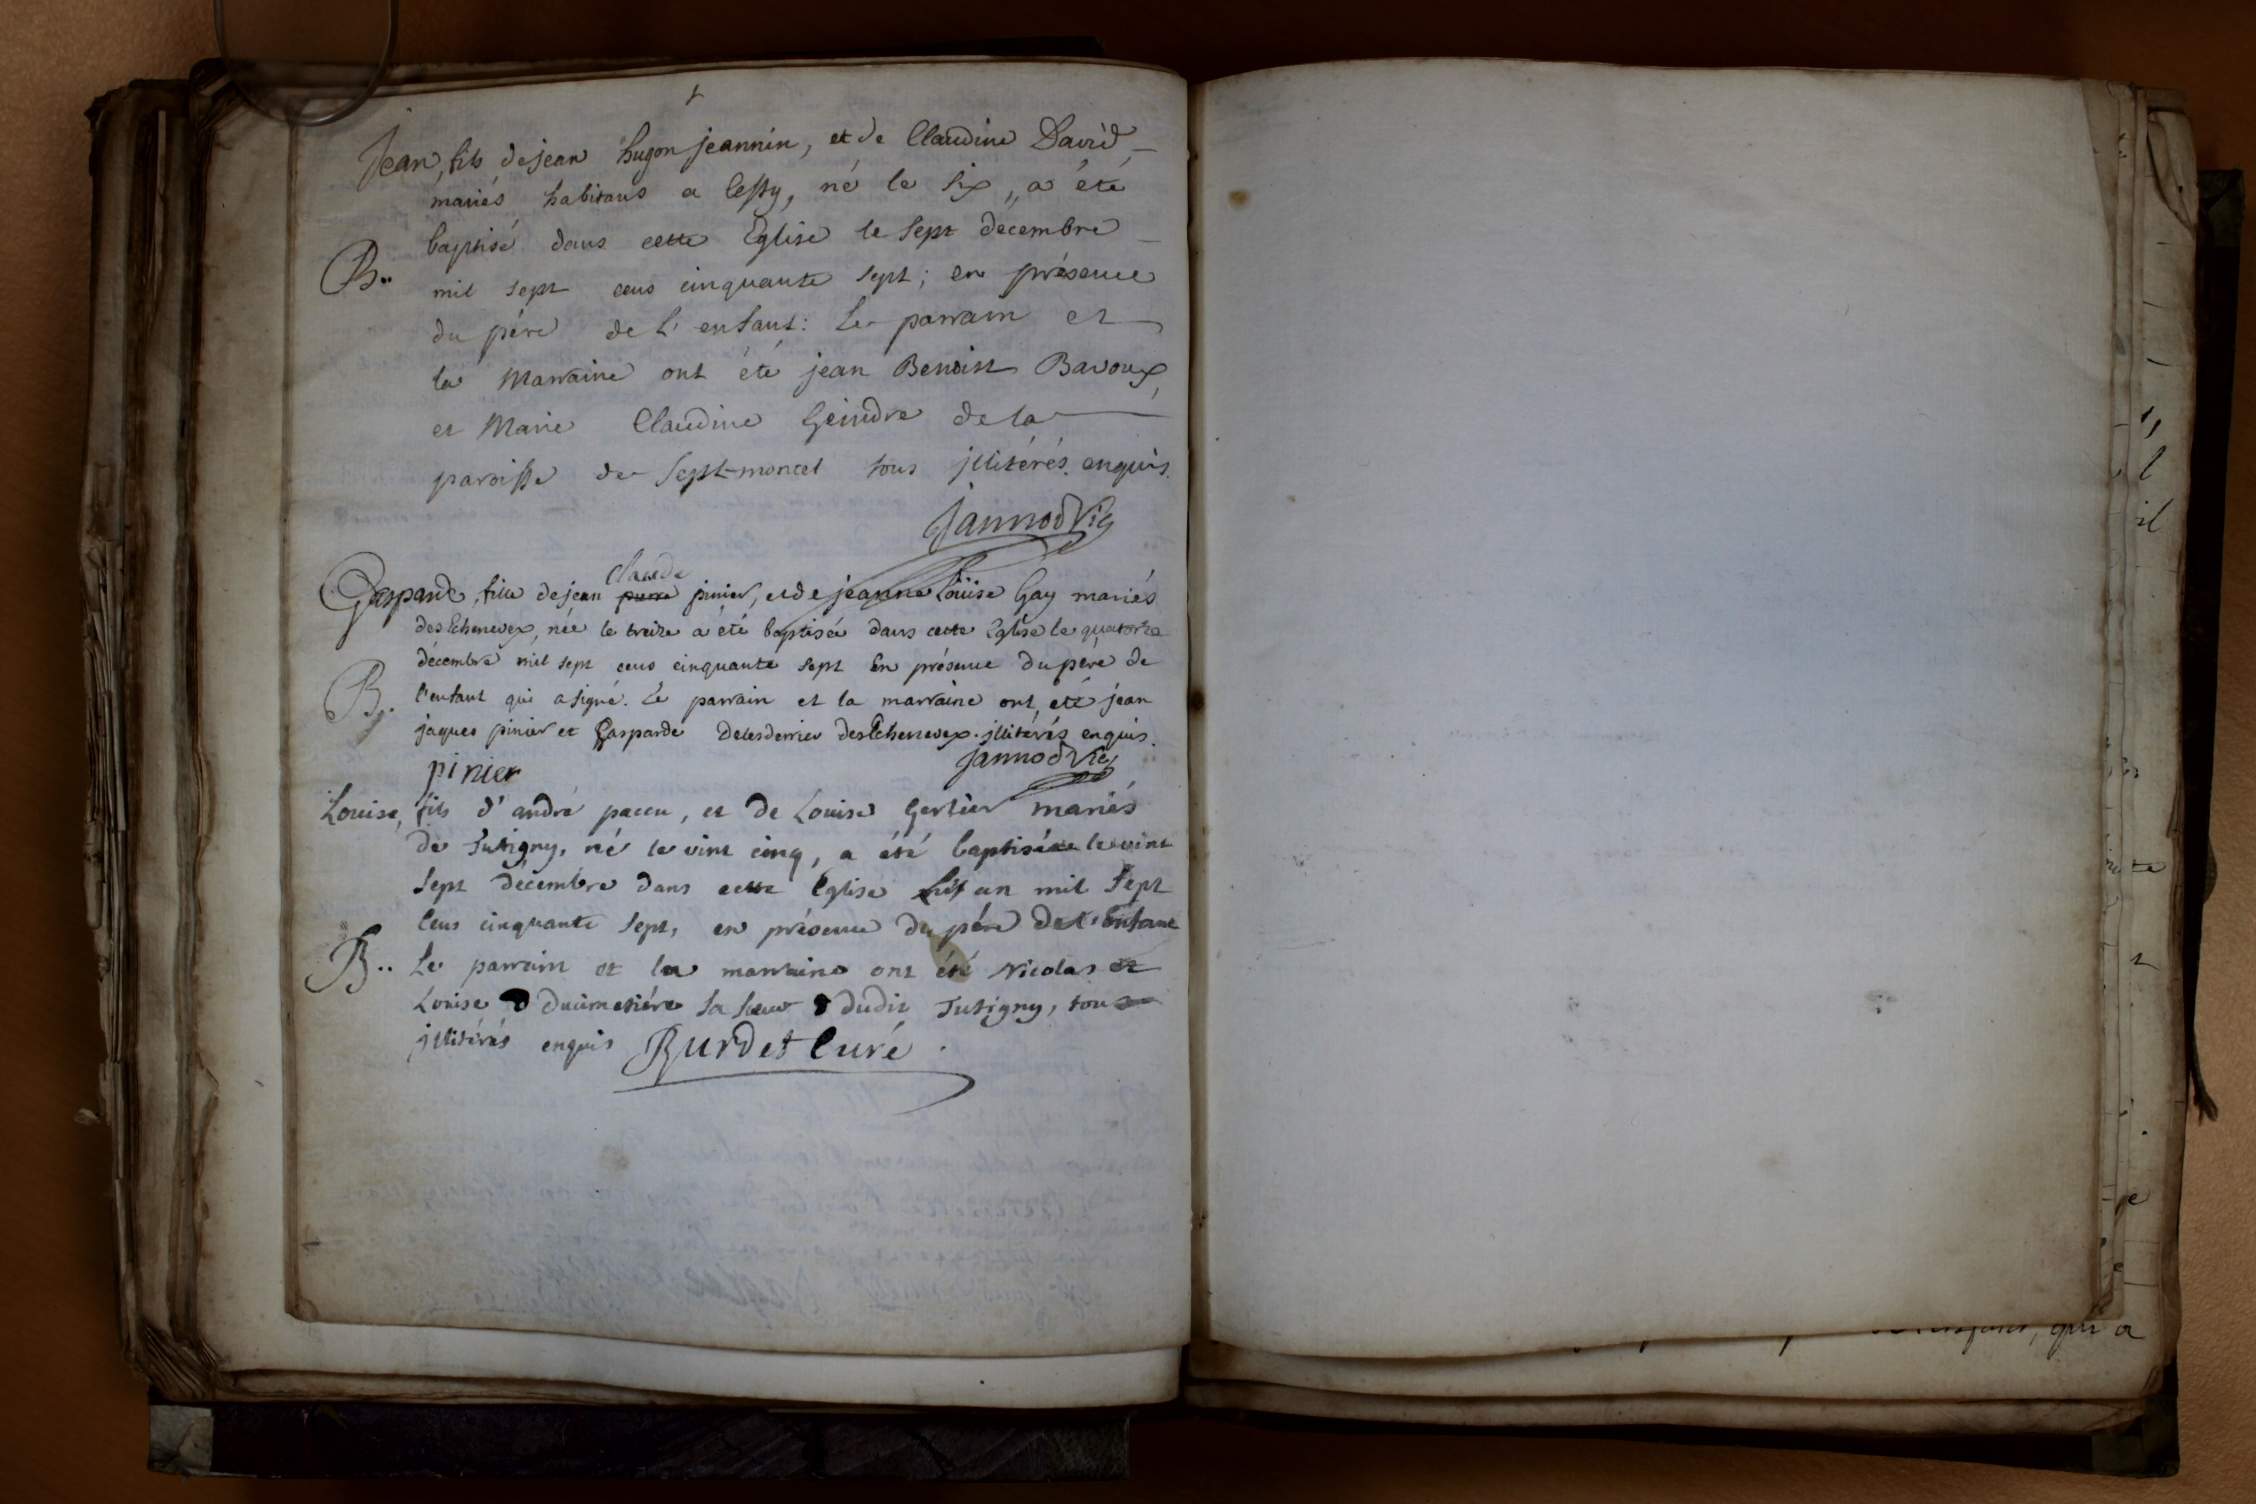 Jean, fils de jean hugon jeannin, et de Claudine David
mariés habitans a Cessy, né le six, a été
baptisé dans cette Eglise le sept décembre
B.. mil sept cens cinquante sept; en présence
du pére de l'enfant: Le parrain et
la Marraine ont été jean Benoist Bavoux,
et Marie Claudine Geindre de la
paroisse de Sept-moncel tous jllitérés enquis.
Jannod Vic
claude
Gasparde, fille de jean pierre pinier, et de jeanne Loüise Gay mariés
des Echenevex, née le treize a été baptisée dans cette Eglise le quatorze
décembre mil sept cens cinquante sept En présence du pére de
B.. l'enfant qui a signé. Le parrain et la marraine ont été jean
jaques pinier et Gasparde delesderrier des Echenevex. jllitérés enquis.
pinier Jannod Vic
Louise, fils d'andré paccu, et de Louise Gertier mariés
de Tutigny, né le vint cinq, a été baptisée le vint
sept décembre dans cette Eglise an mil sept
Cens cinquante sept, en présence du pére de l'enfant
B.. Le parrain et la marraine ont été Nicolas et
Louise ducimetiére sa soeur dudit Tutigny, tous
jllitérés enquis Burdet Curé.
qui a